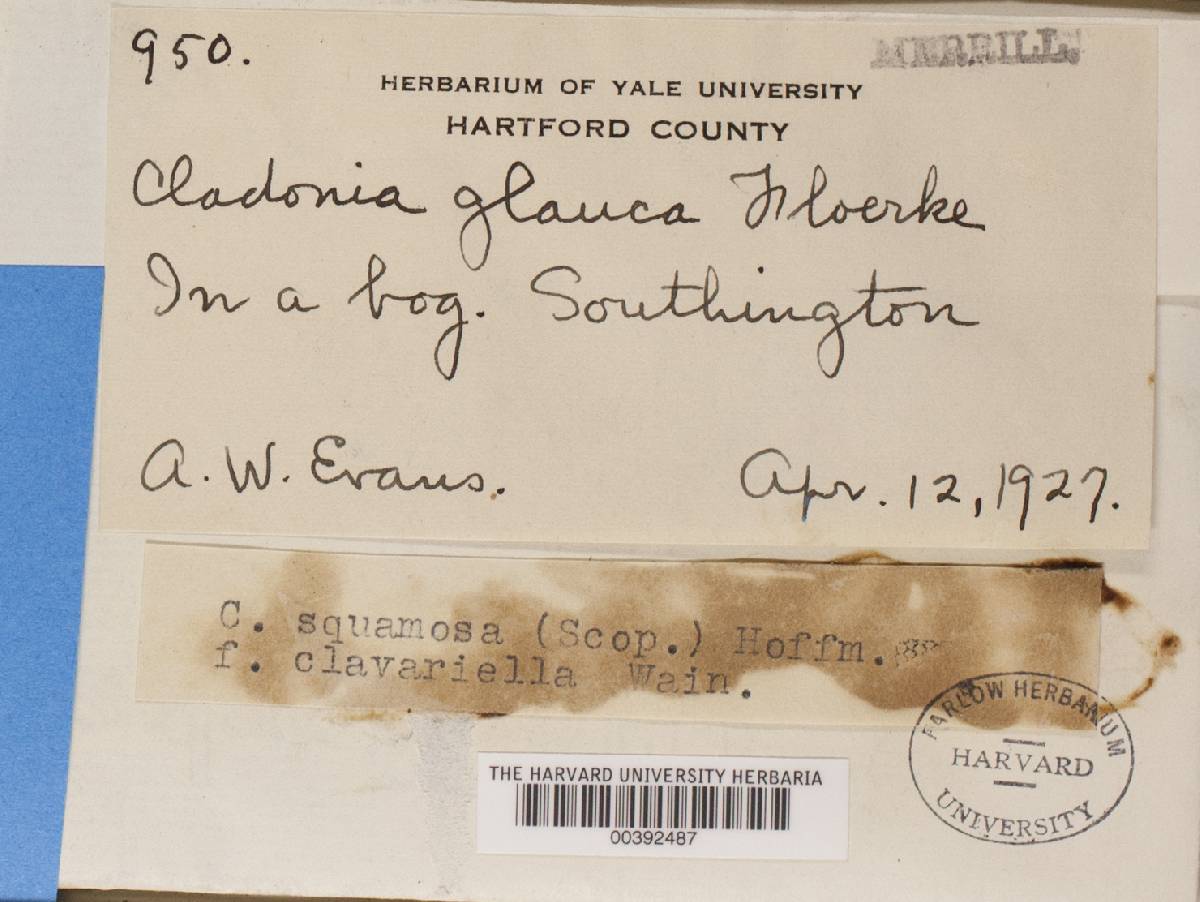 950.
MERRILL.
HERBARIUM OF YALE UNIVERSITY
HARTFORD COUNTY
Cladonia glauca Floerke
In a bog. Southington
A. W. Evans.
Apr. 12, 1927.
C. squamosa (Scop.) Hoffm.
f. clavariella Wain.
FARLOW HERBARIUM
HARVARD
UNIVERSITY
THE HARVARD UNIVERSITY HERBARIA
00392487